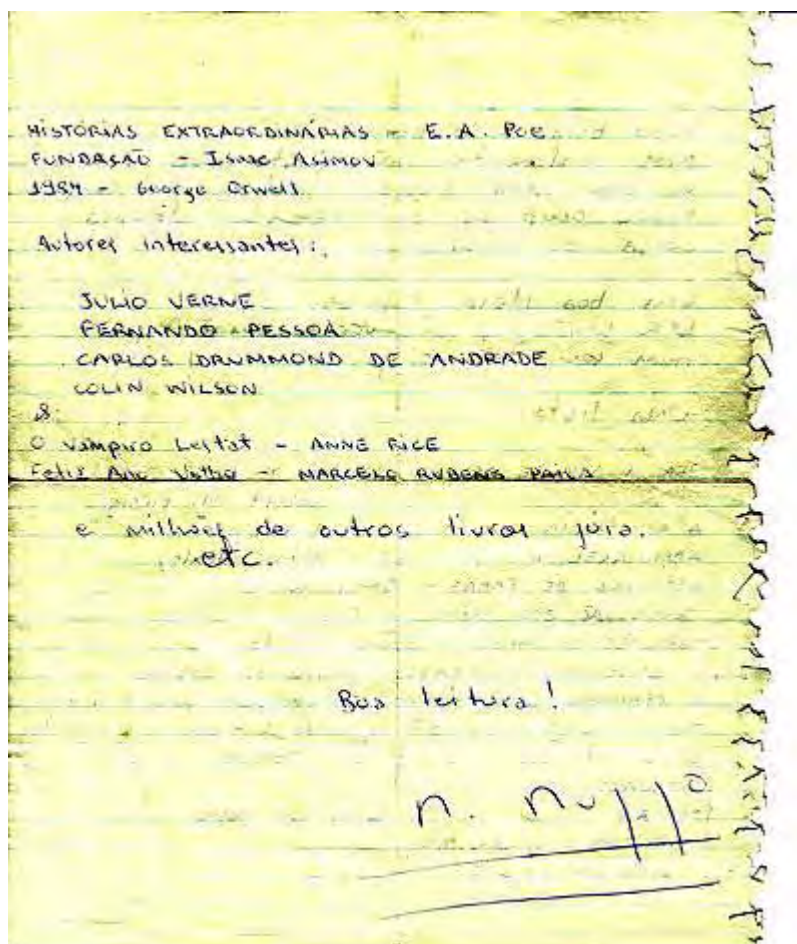 HISTÓRIAS EXTRAORDINÁRIAS - E.A. POE
FUNDAÇÃO - ISAAC ASIMOV
1984 - George Orwell
Autores interessantes:
JULIO VERNE
FERNANDO PESSOA
CARLOS DRUMMOND DE ANDRADE
COLIN WILSON
&
O Vampiro Lestat - ANNE RICE
Feliz Ano Velho - MARCELO RUBENS PAIVA
e milhões de outros livros, juro.
etc.
Boa leitura!